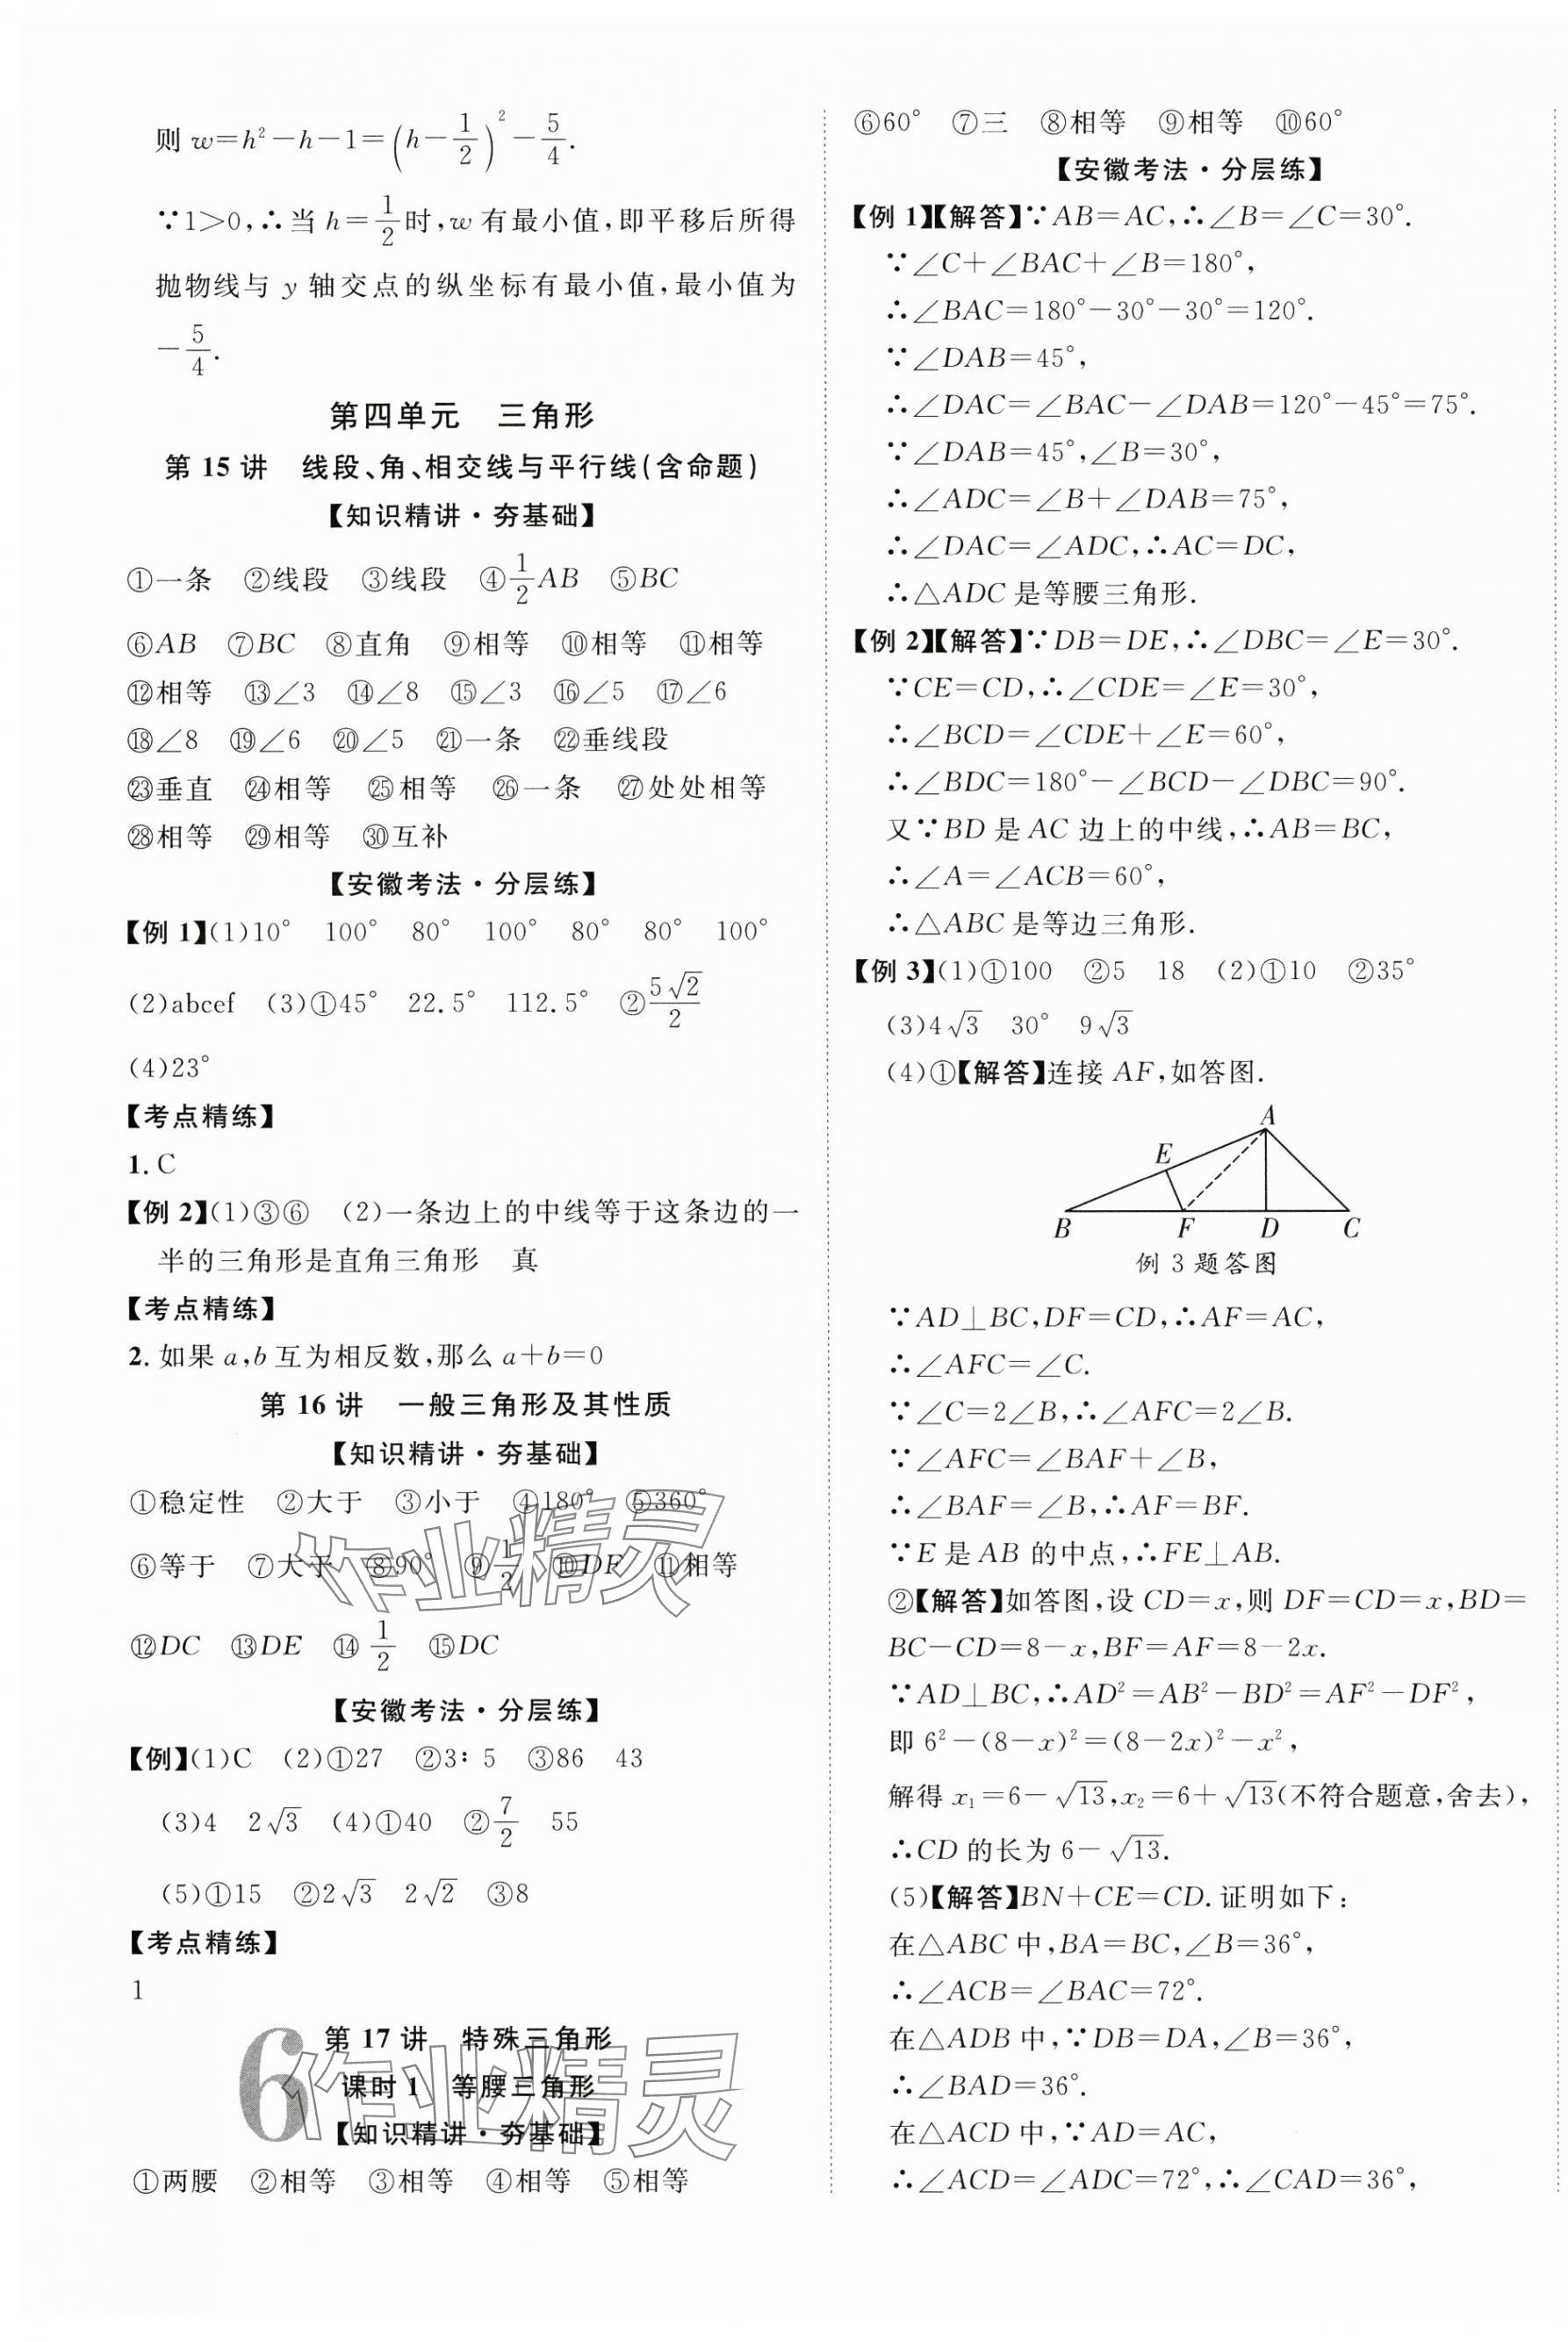 则 w=h²-h-1=(h-1/2)²-5/4.
∵1>0,∴当 h=1/2时,w 有最小值,即平移后所得
抛物线与 y 轴交点的纵坐标有最小值,最小值为
-5/4.
第四单元 三角形
第 15 讲 线段、角、相交线与平行线(含命题)
【知识精讲·夯基础】
①一条 ②线段 ③线段 ④1/2AB ⑤BC
⑥AB ⑦BC ⑧直角 ⑨相等 ⑩相等 ⑪相等
⑫相等 ⑬∠3 ⑭∠8 ⑮∠3 ⑯∠5 ⑰∠6
⑱∠8 ⑲∠6 ⑳∠5 ㉑一条 ㉒垂线段
㉓垂直 ㉔相等 ㉕相等 ㉖一条 ㉗处处相等
㉘相等 ㉙相等 ㉚互补
【安徽考法·分层练】
【例 1】(1)10° 100° 80° 100° 80° 80° 100°
(2)abcef (3)①45° 22.5° 112.5° ②5√2/2
(4)23°
【考点精练】
1.C
【例 2】(1)③⑥ (2)一条边上的中线等于这条边的一
半的三角形是直角三角形 真
【考点精练】
2.如果 a,b 互为相反数,那么 a+b=0
第 16 讲 一般三角形及其性质
【知识精讲·夯基础】
①稳定性 ②大于 ③小于 ④180° ⑤360°
⑥等于 ⑦大于 ⑧90° ⑨1/2 ⑩DF ⑪相等
⑫DC ⑬DE ⑭1/2 ⑮DC
【安徽考法·分层练】
【例】(1)C (2)①27 ②3∶5 ③86 43
(3)4 2√3 (4)①40 ②7/2 55
(5)①15 ②2√3 2√2 ③8
【考点精练】
1
第 17 讲 特殊三角形
课时 1 等腰三角形
【知识精讲·夯基础】
①两腰 ②相等 ③相等 ④相等 ⑤相等
6
作业精灵
作业精灵
⑥60° ⑦三 ⑧相等 ⑨相等 ⑩60°
【安徽考法·分层练】
【例 1】【解答】∵AB=AC,∴∠B=∠C=30°.
∵∠C+∠BAC+∠B=180°,
∴∠BAC=180°-30°-30°=120°.
∵∠DAB=45°,
∴∠DAC=∠BAC-∠DAB=120°-45°=75°.
∵∠DAB=45°,∠B=30°,
∴∠ADC=∠B+∠DAB=75°,
∴∠DAC=∠ADC,∴AC=DC,
∴△ADC 是等腰三角形.
【例 2】【解答】∵DB=DE,∴∠DBC=∠E=30°.
∵CE=CD,∴∠CDE=∠E=30°,
∴∠BCD=∠CDE+∠E=60°,
∴∠BDC=180°-∠BCD-∠DBC=90°.
又∵BD 是 AC 边上的中线,∴AB=BC,
∴∠A=∠ACB=60°,
∴△ABC 是等边三角形.
【例 3】(1)①100 ②5 18 (2)①10 ②35°
(3)4√3 30° 9√3
(4)①【解答】连接 AF,如答图.
A
E
B F D C
例 3 题答图
∵AD⊥BC,DF=CD,∴AF=AC,
∴∠AFC=∠C.
∵∠C=2∠B,∴∠AFC=2∠B.
∵∠AFC=∠BAF+∠B,
∴∠BAF=∠B,∴AF=BF.
∵E 是 AB 的中点,∴FE⊥AB.
②【解答】如答图,设 CD=x,则 DF=CD=x,BD=
BC-CD=8-x,BF=AF=8-2x.
∵AD⊥BC,∴AD²=AB²-BD²=AF²-DF²,
即 6²-(8-x)²=(8-2x)²-x²,
解得 x₁=6-√13,x₂=6+√13(不符合题意,舍去),
∴CD 的长为 6-√13.
(5)【解答】BN+CE=CD.证明如下:
在△ABC 中,BA=BC,∠B=36°,
∴∠ACB=∠BAC=72°.
在△ADB 中,∵DB=DA,∠B=36°,
∴∠BAD=36°.
在△ACD 中,∵AD=AC,
∴∠ACD=∠ADC=72°,∴∠CAD=36°,